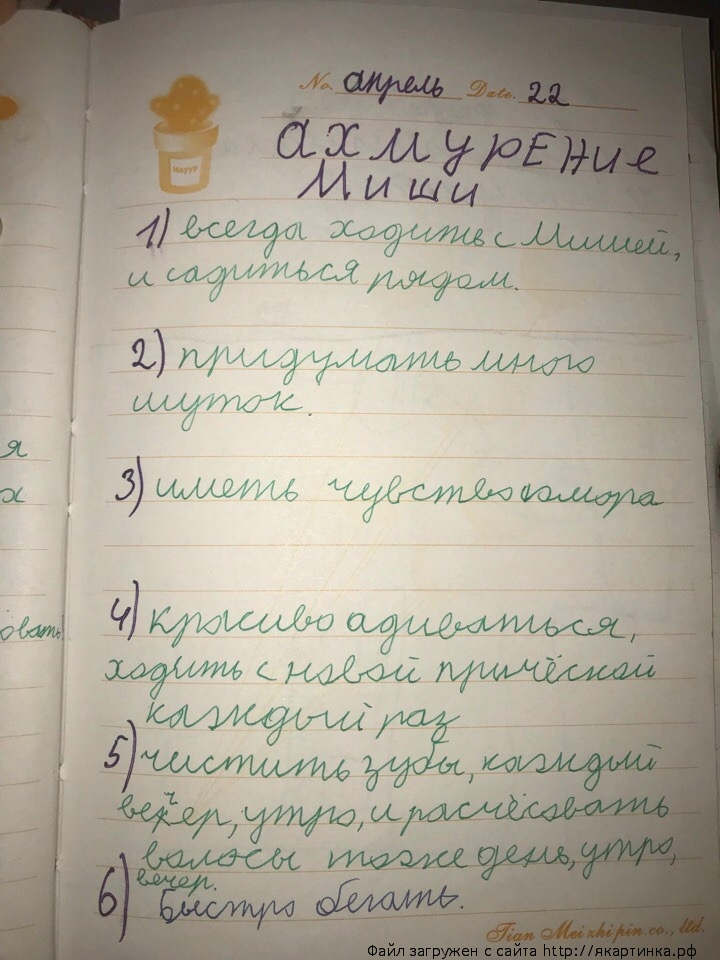 No. апрель Date. 22
Happy
ахмурение
Миши
1) всегда ходить с Мишей,
и садиться рядом.
2) придумать много
шуток.
3) иметь чувство юмора
4) красиво адиваться,
ходить с новой причёской
каждый раз
5) чистить зубы, каждый
вечер, утро, и расчёсовать
волосы тоже день, утро,
вечер.
6) Быстро бегать.
я
х
овать
Tian Meizhipin.co., ltd.
Файл загружен с сайта http://якартинка.рф